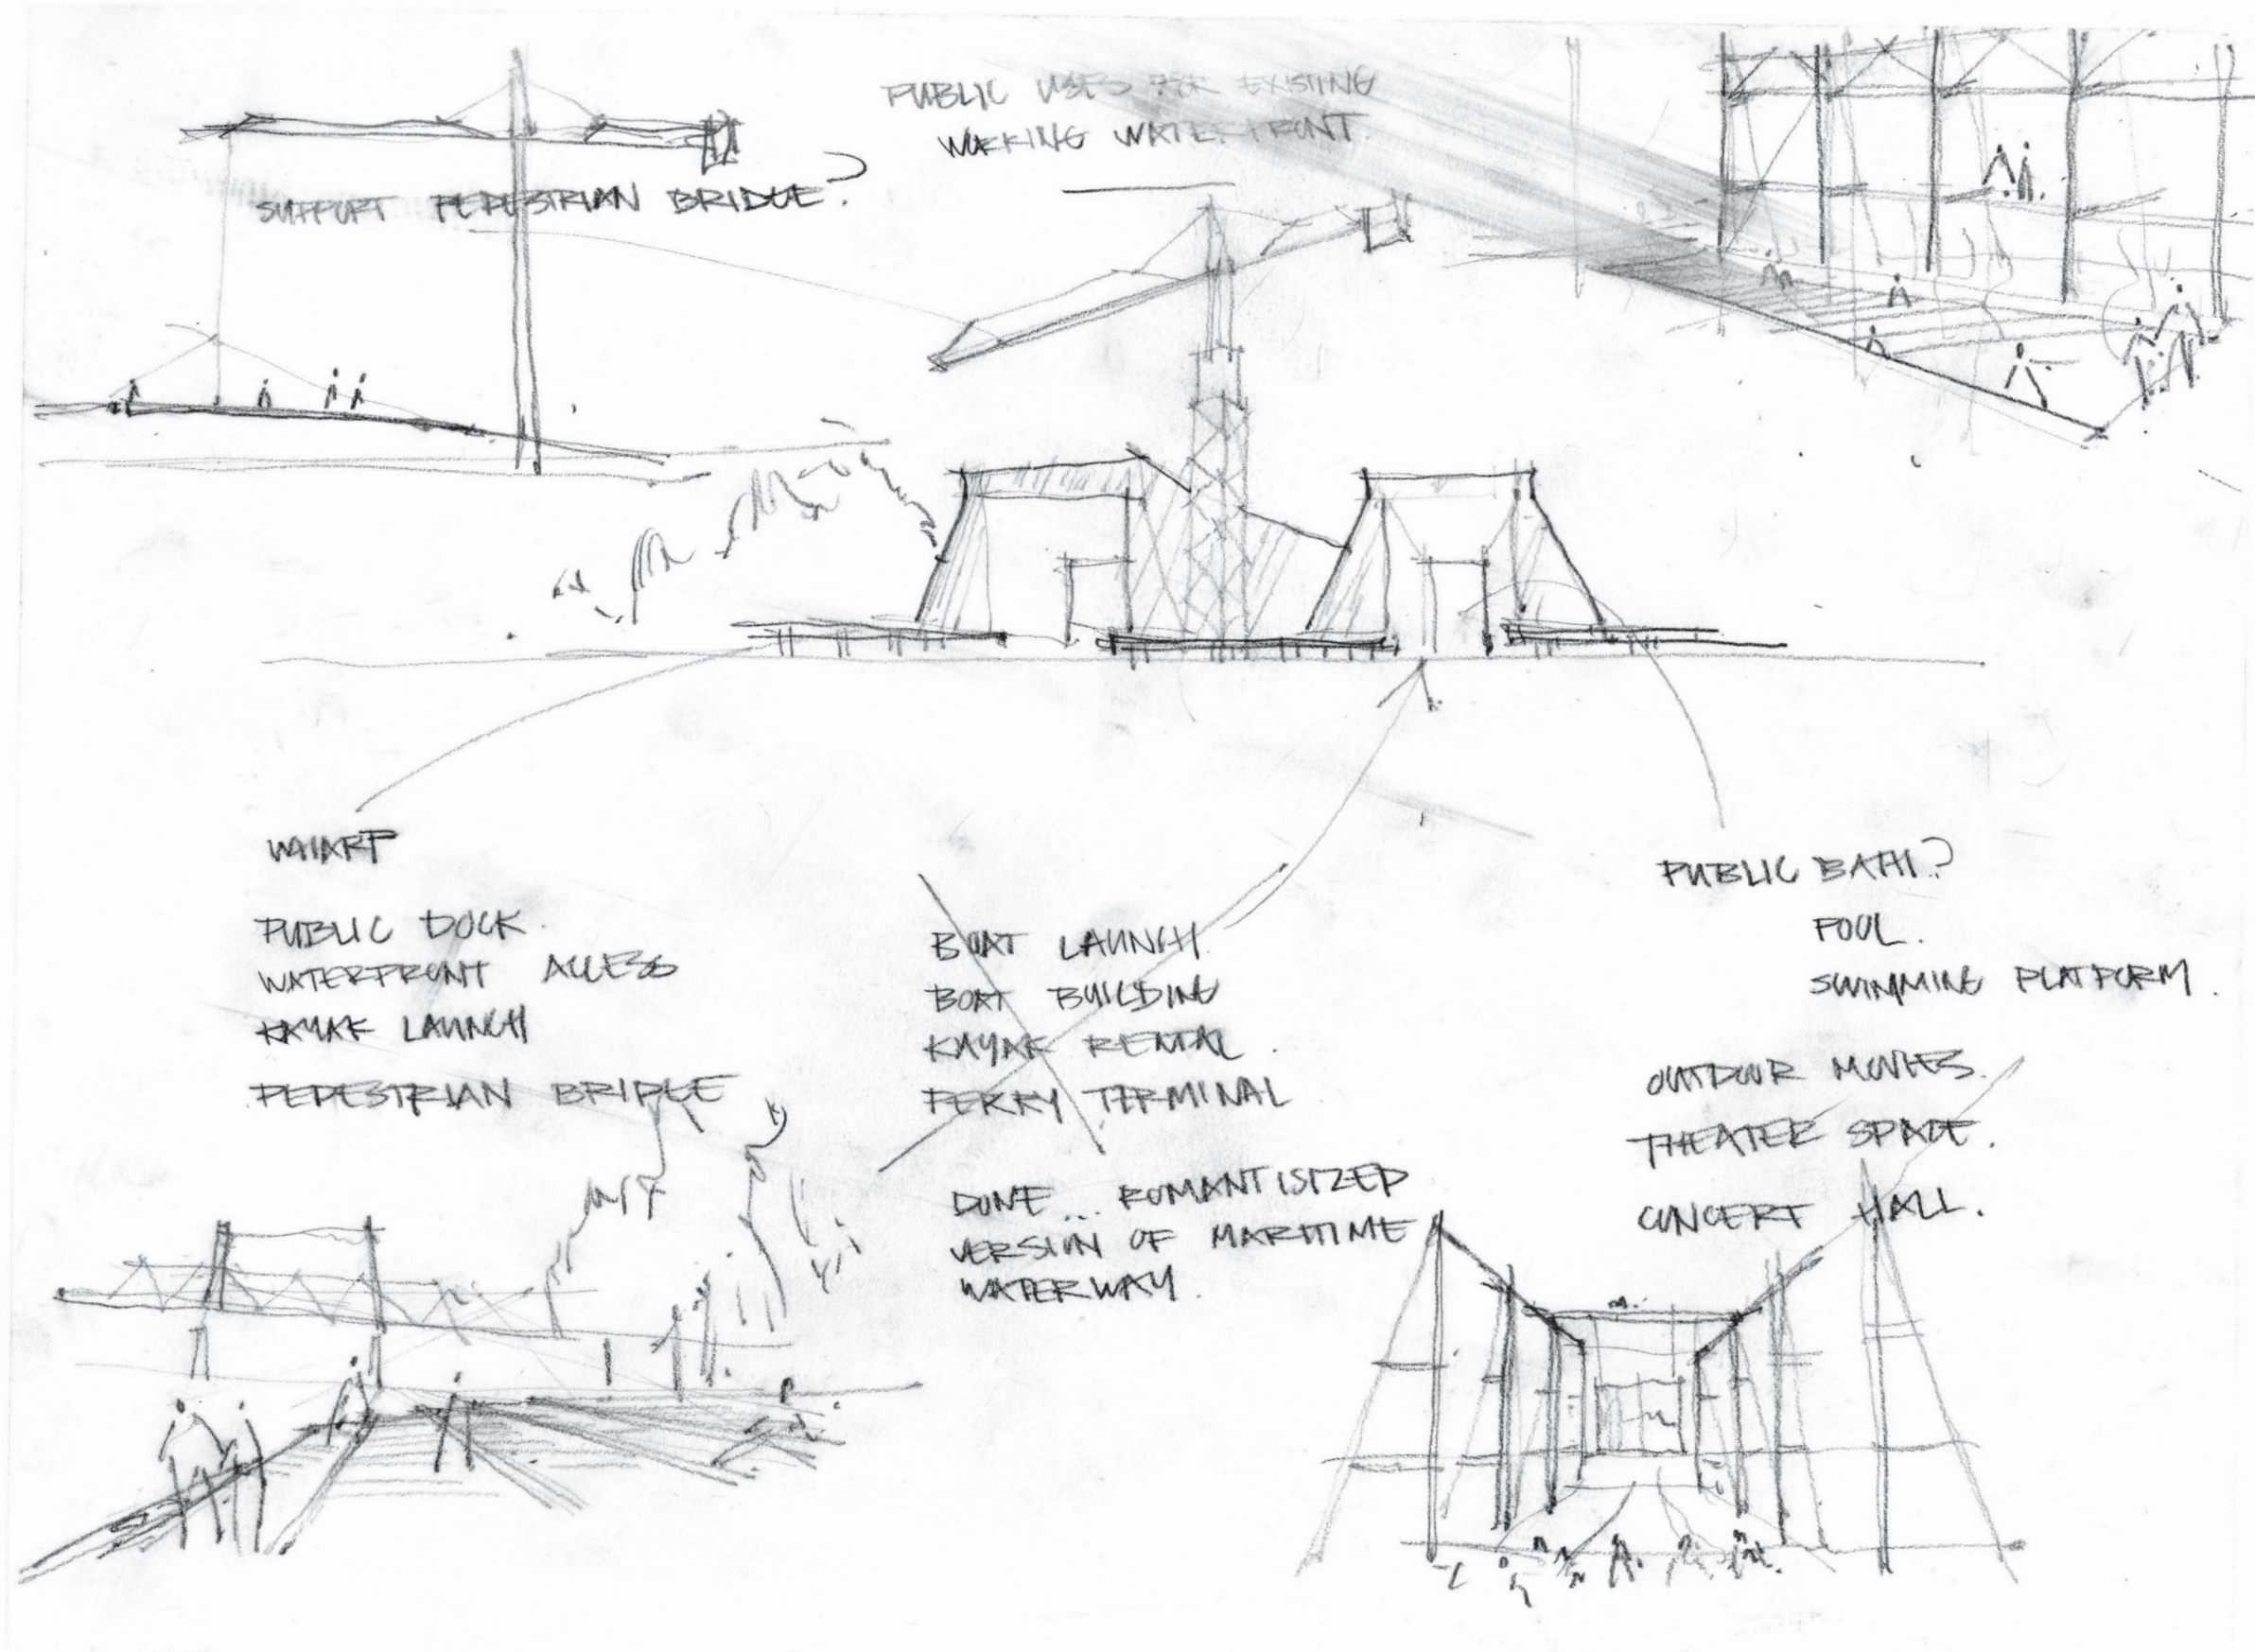 PUBLIC USES FOR EXISTING
WORKING WATERFRONT.
SUPPORT PEDESTRIAN BRIDGE?
WHARF
PUBLIC DOCK.
WATERFRONT ACCESS
KAYAK LAUNCH
PEDESTRIAN BRIDGE
BOAT LAUNCH.
BOAT BUILDING
KAYAK RENTAL.
FERRY TERMINAL
DONE... ROMANTISIZED
VERSION OF MARITIME
WATERWAY.
PUBLIC BATH?
POOL.
SWIMMING PLATFORM.
OUTDOOR MOVIES.
THEATER SPACE.
CONCERT HALL.